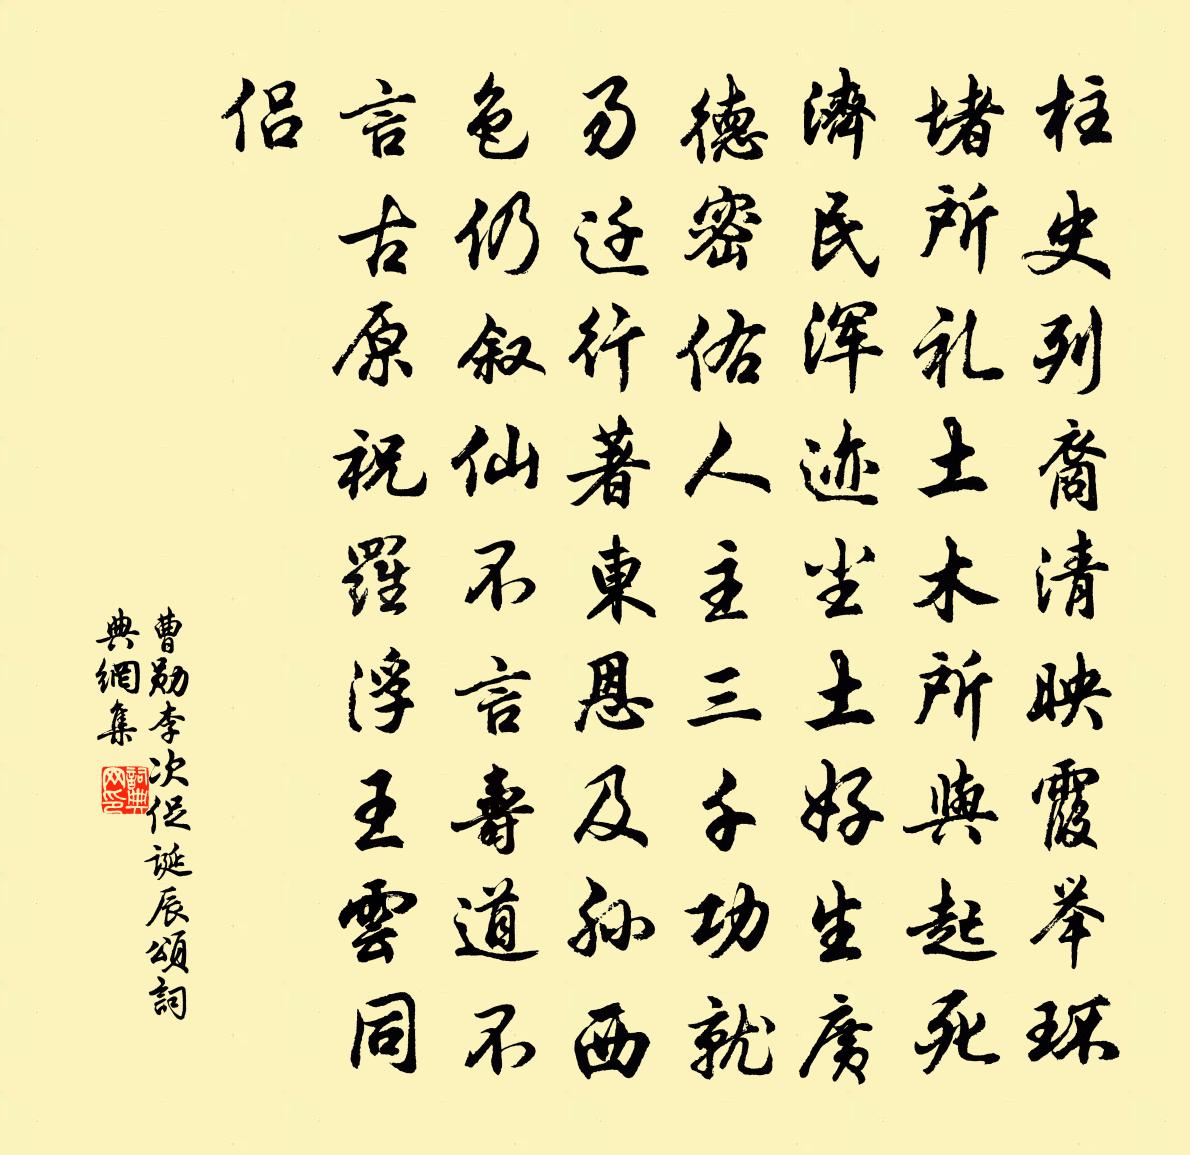 柱史列裔清映霞举环
堵所礼土木所與起死
濟民浑迹尘土好生廣
德密佑人主三千功就
易迁行著東恩及孙西
色仍叙仙不言壽道不
言古原祝羅浮王雲同
侣
曹勋李次促诞辰頌詞
典網集
詞典网印